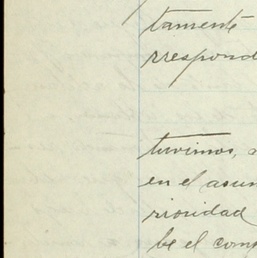 tamente
rrespond
tuvimos,
en el asun
rioridad
be el comp